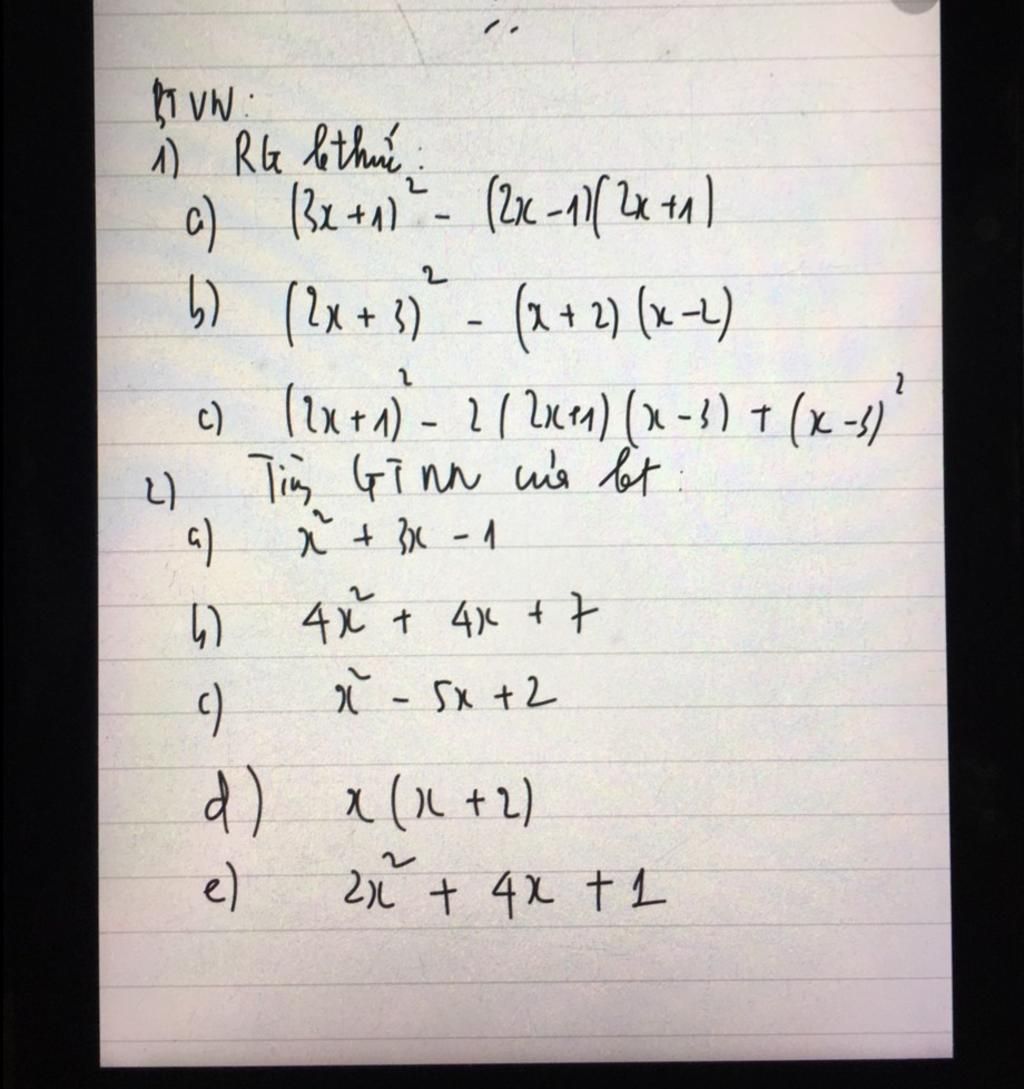 BTVN:
1) RG bthức:
a) (3x+1)² - (2x-1)(2x+1)
b) (2x+3)² - (x+2)(x-2)
c) (2x+1)² - 2(2x+1)(x-3) + (x-3)²
2) Tìm GTNN của bt:
a) x² + 3x - 1
b) 4x² + 4x + 7
c) x² - 5x + 2
d) x(x+2)
e) 2x² + 4x + 1